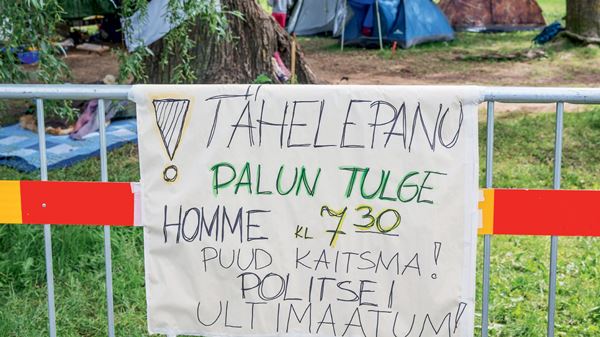 ! TÄHELEPANU
PALUN TULGE
HOMME KL 7³⁰
PUUD KAITSMA!
POLITSEI
ULTIMAATUM!